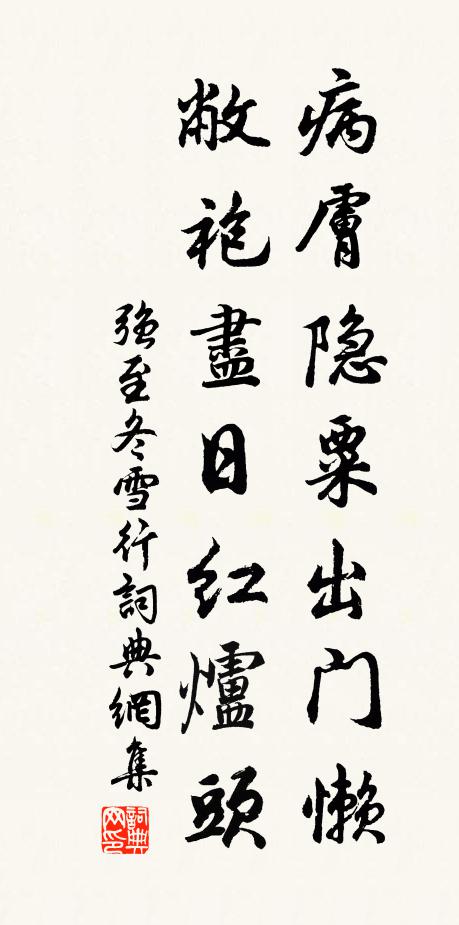 病膚隐粟出门懒
敝袍盡日红爐頭
强至冬雪行詞典網集
詞典網印